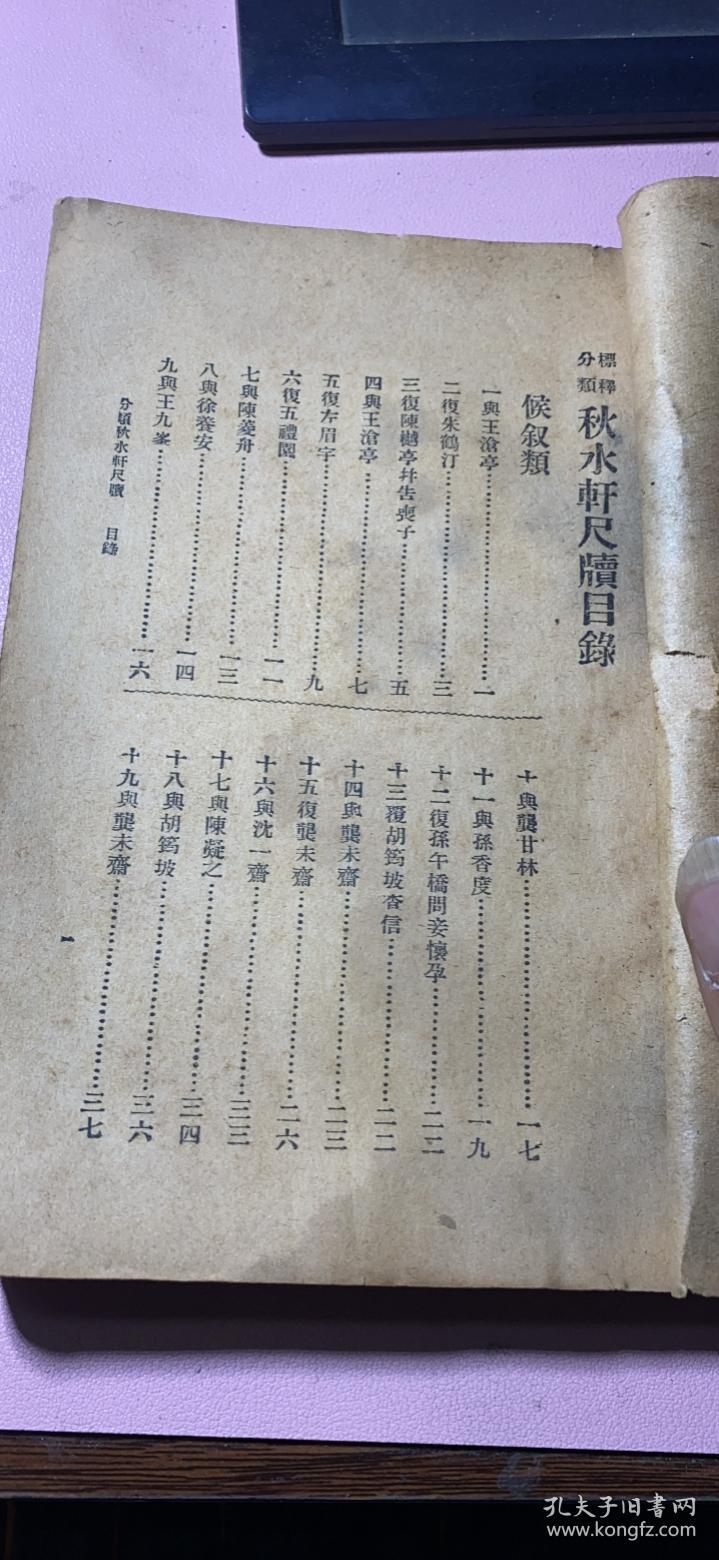 標釋
分類
秋水軒尺牘目錄
候叙類
一與王滄亭……一
二復朱鶴汀……三
三復陳樾亭幷告喪子……五
四與王滄亭……七
五復左眉字……九
六復五禮園……一一
七與陳菱舟……一三
八與徐養安……一四
九與王九峯……一六
十與龔甘林……一七
十一與孫香度……一九
十二復孫午橋問妾懷孕……二二
十三覆胡筠坡杳信……二二
十四與龔未齋……二三
十五復龔未齋……二六
十六與沈一齋……三三
十七與陳凝之……三四
十八與胡筠坡……三六
十九與龔未齋……三七
分類秋水軒尺牘 目錄
一
孔夫子旧書网
www.kongfz.com